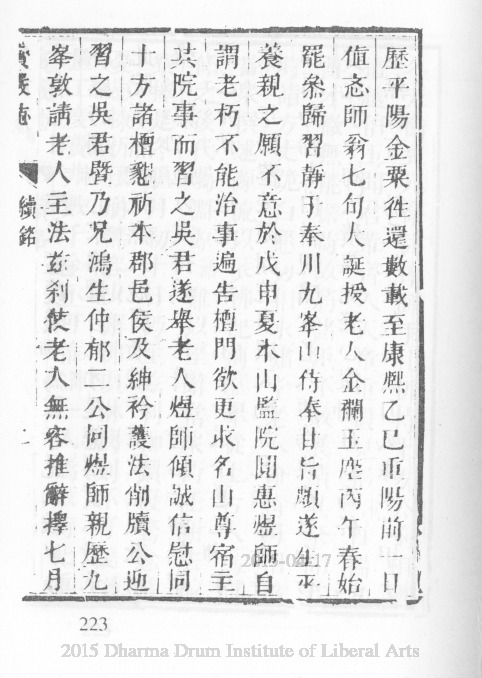 歷平陽金粟徃還數載至康熈乙巳重陽前一日
值忞師翁七旬大誕授老人金襴玉塵丙午春始
罷叅歸習靜于奉川九峯山侍奉甘旨頗遂生平
養親之願不意於戊申夏本山監院聞惠煜師自
謂老朽不能治事遍告檀門欲更求名山尊宿主
其院事而習之吳君遂舉老人煜師傾誠信慰同
十方諸檀懇祈本郡邑侯及紳衿護法削牘公地
習之吳君暨乃兄鴻生仲郁二公同煜師親歷九
峯敦請老人主法茲刹使老人無容推辭擇七月
續銘
223
2015 Dharma Drum Institute of Liberal Arts